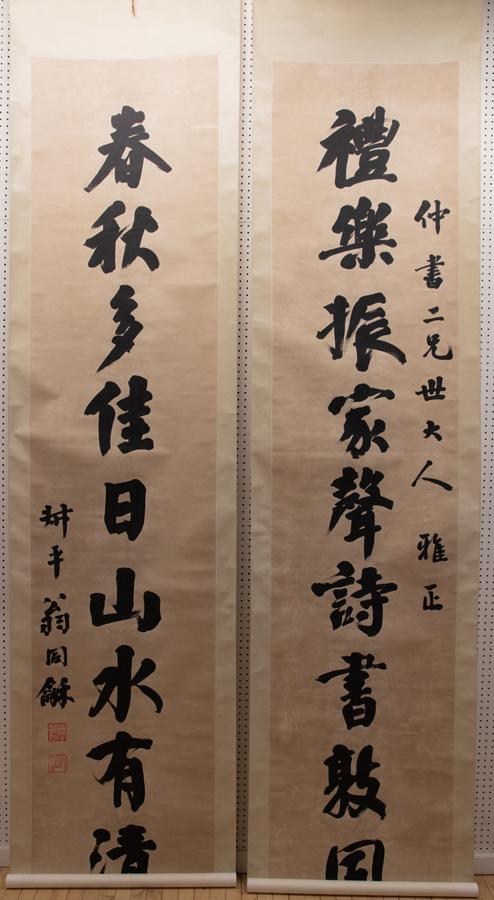 仲書二兄世大人 雅正
禮樂振家聲詩書敦
春秋多佳日山水有清
叔平翁同龢